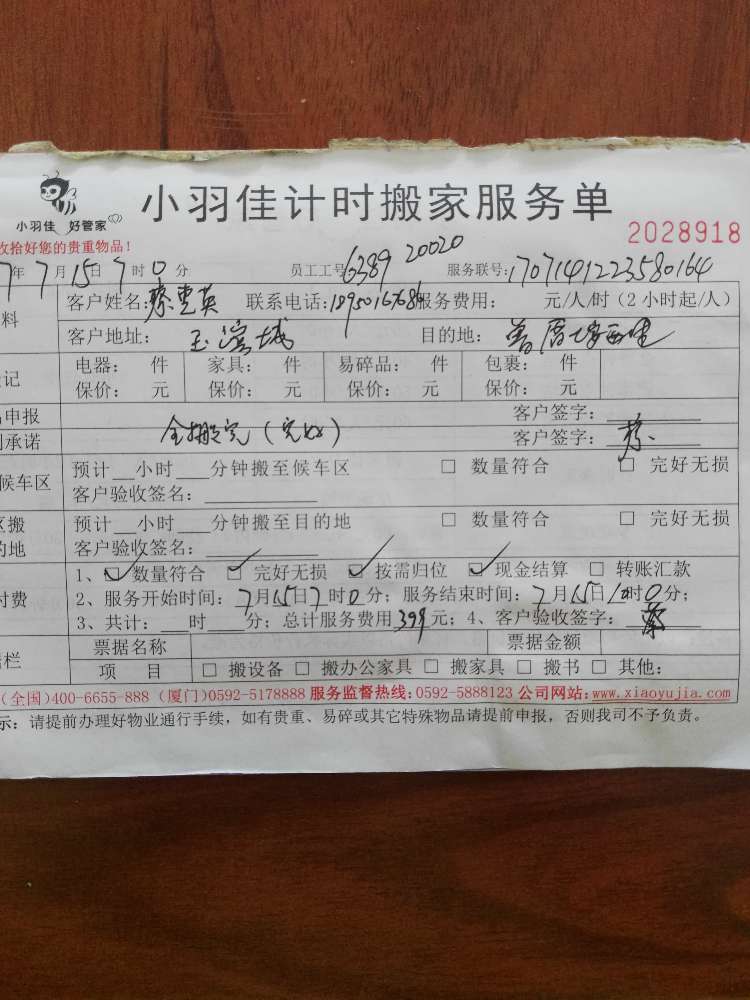 小羽佳 好管家
小羽佳计时搬家服务单
2028918
收拾好您的贵重物品!
7年7月15日7时0分 员工工号6389 20020 服务联号:1707141223580164
料
客户姓名:蔡惠英 联系电话: 服务费用: 元/人/时(2小时起/人)
客户地址: 玉滨城 目的地:
记
电器: 件 家具: 件 易碎品: 件 包裹: 件
保价: 元 保价: 元 保价: 元 保价: 元
申报 客户签字:
承诺 全搬完(完好) 客户签字: 蔡
候车区
预计__小时___分钟搬至候车区 □ 数量符合 □ 完好无损
客户验收签名:
区搬
的地
预计__小时___分钟搬至目的地 □ 数量符合 □ 完好无损
客户验收签名:
付费
1、☑数量符合 ☑完好无损 ☑按需归位 ☑现金结算 □ 转账汇款
2、服务开始时间: 7月15日7时0分; 服务结束时间: 7月15日10时0分;
3、共计:___时____分; 总计服务费用399元; 4、客户验收签字: 蔡
栏
票据名称 票据金额
项 目 □ 搬设备 □ 搬办公家具 □ 搬家具 □ 搬书 □ 其他:
(全国)400-6655-888 (厦门)0592-5178888 服务监督热线:0592-5888123 公司网站:www.xiaoyujia.com
示: 请提前办理好物业通行手续,如有贵重、易碎或其它特殊物品请提前申报,否则我司不予负责。